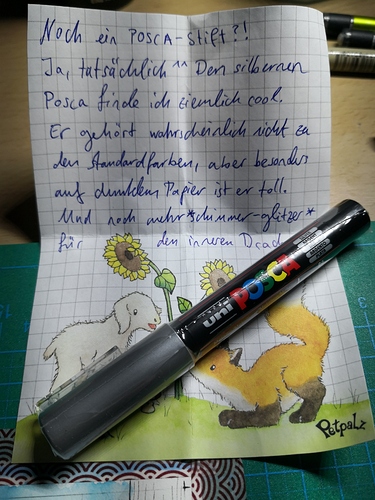 Noch ein POSCA-Stift?!
Ja, tatsächlich ^^ Den silbernen
Posca finde ich ziemlich cool.
Er gehört wahrscheinlich nicht zu
den Standardfarben, aber besonders
auf dunklem Papier ist er toll.
Und noch mehr *schimmer-glitzer*
für den inneren
uni POSCA
Petpalz